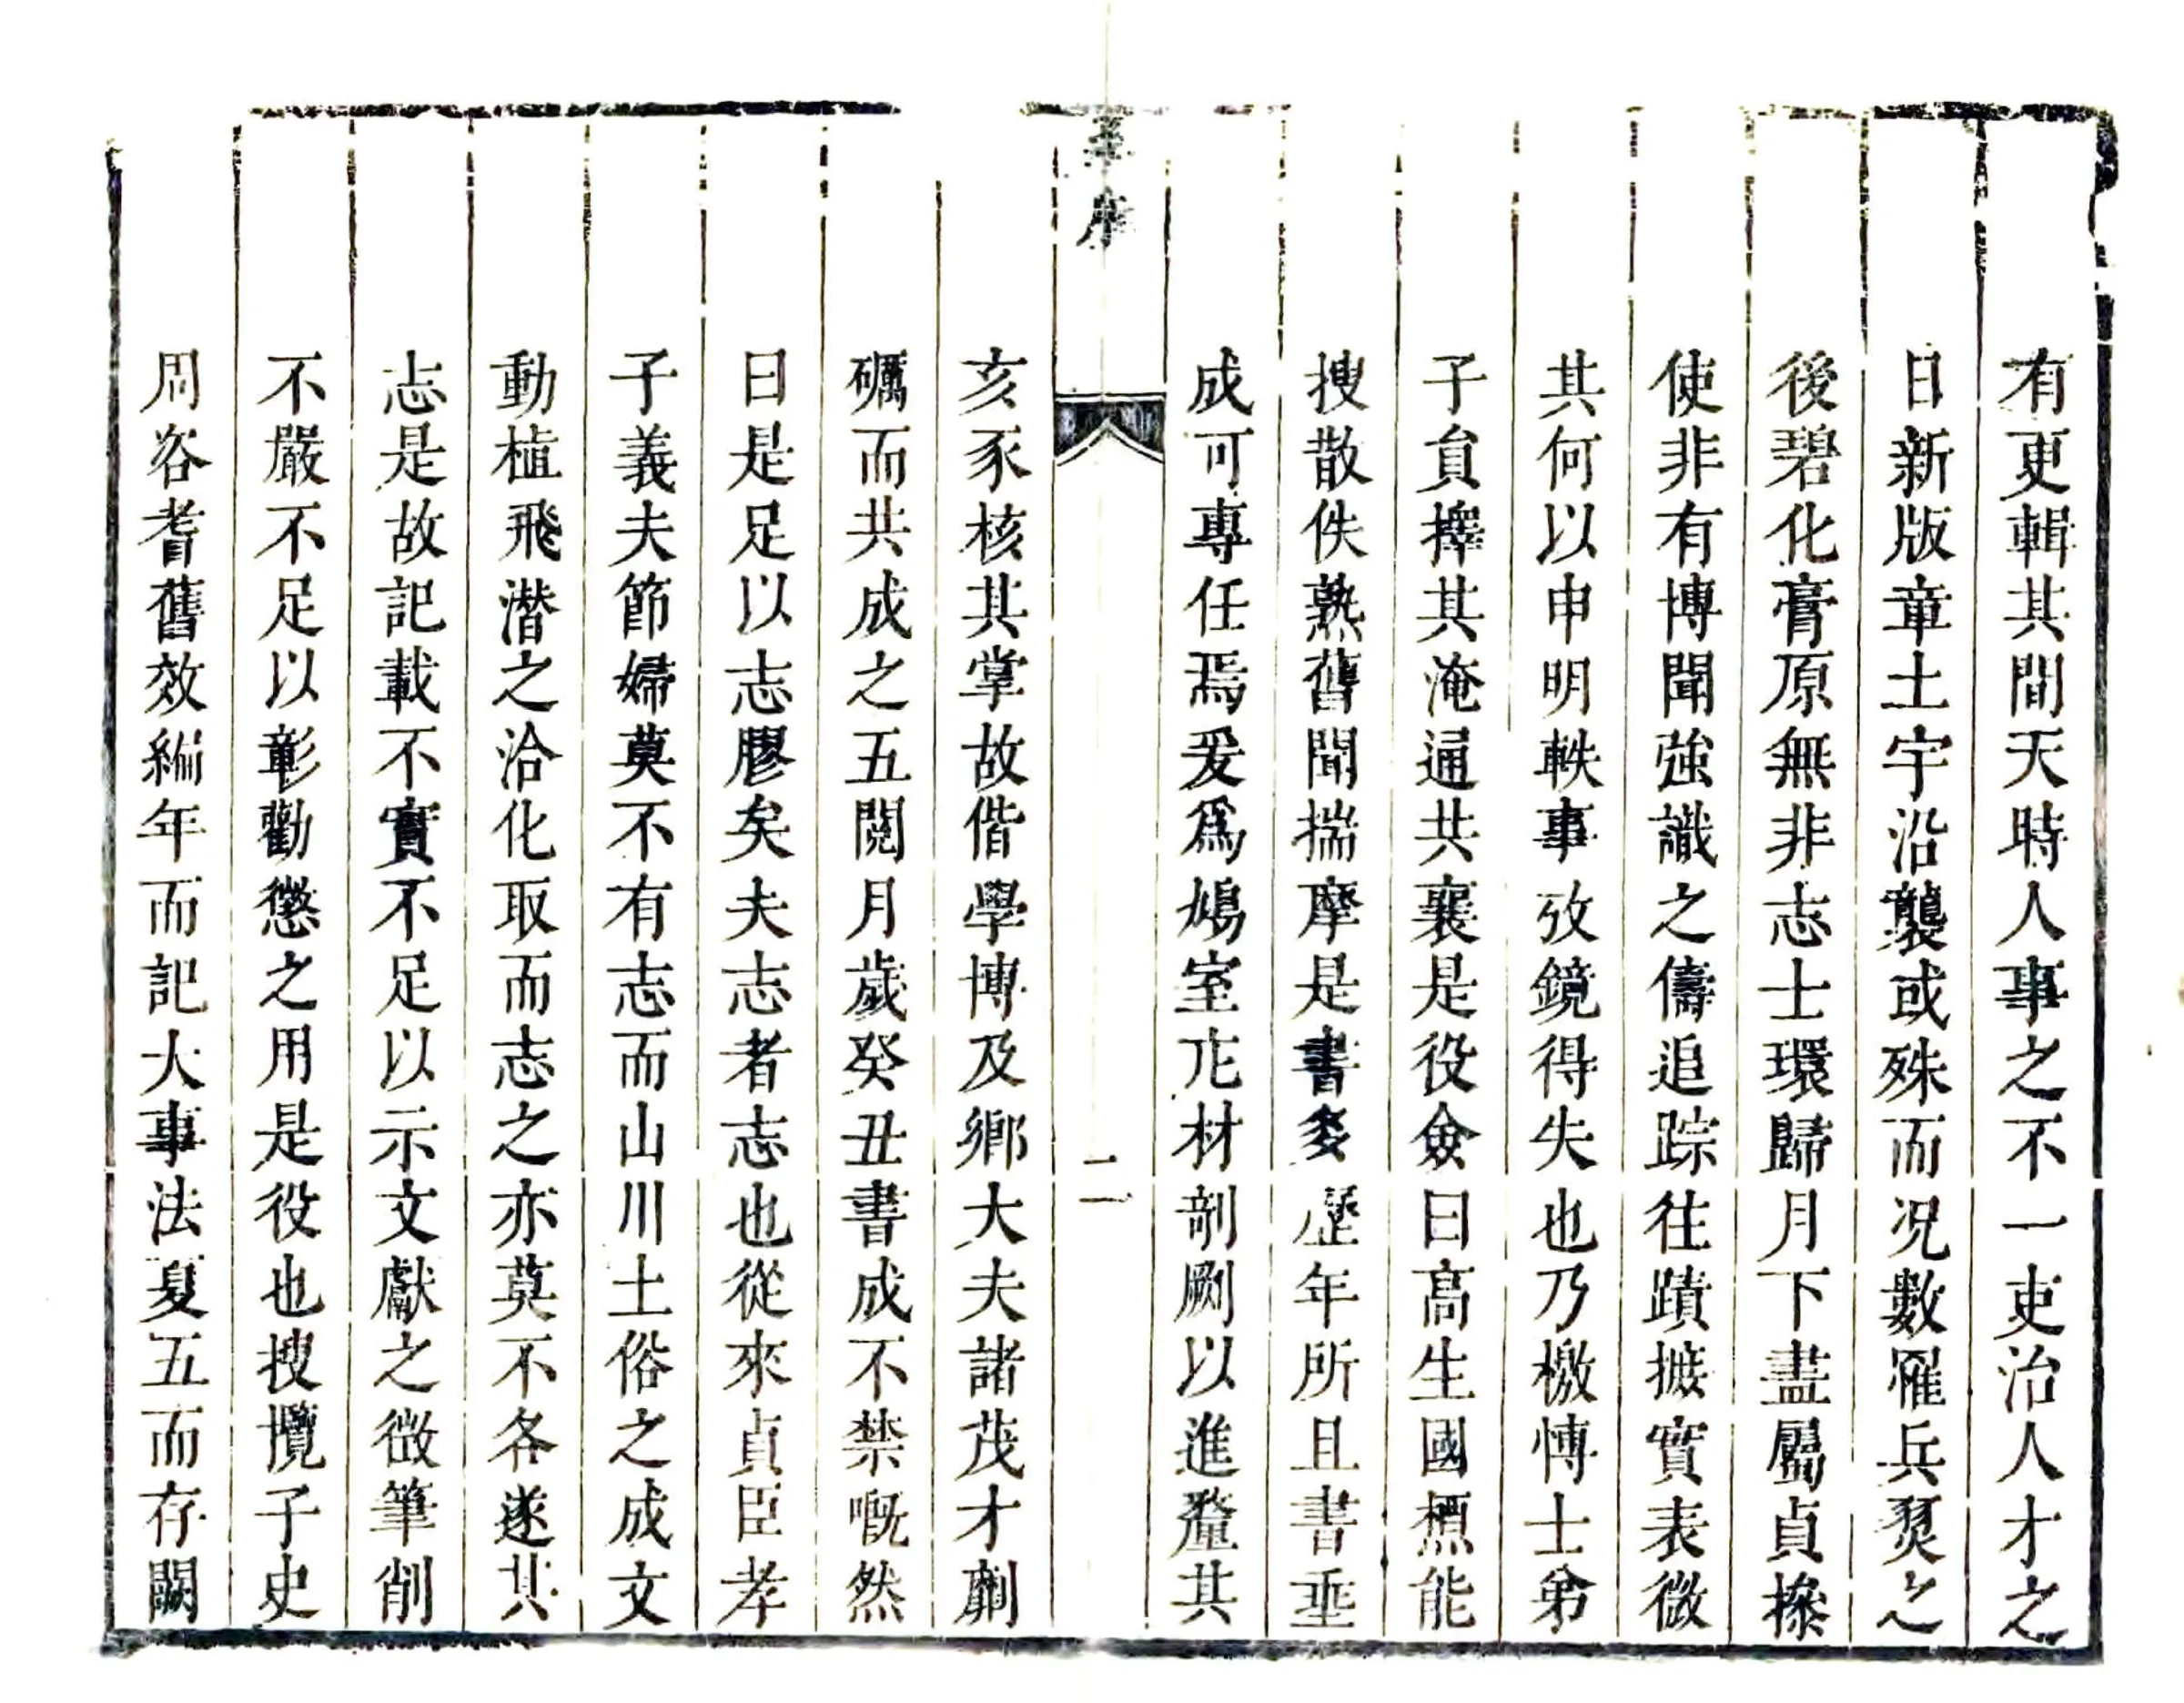 有更輯其間天時人事之不一吏治人才之
日新版章土宇沿襲或殊而况數罹兵燹之
後碧化膏原無非志士環歸月下盡屬貞摻
使非有博聞強識之儔追踪往蹟摭實表微
其何以申明軼事攷鏡得失也乃檄博士弟
子員擇其淹通共襄是役僉曰高生國楒能
搜散佚熟舊聞揣摩是書多歷年所且書垂
成可專任焉爰為鳩室庀材剞劂以進釐其
序
二
亥豕核其掌故偕學博及鄉大夫諸茂才劘
礪而共成之五閱月歲癸丑書成不禁嘅然
曰是足以志膠矣夫志者志也從來貞臣孝
子義夫節婦莫不有志而山川土俗之成文
動植飛潛之洽化取而志之亦莫不各遂其
志是故記載不實不足以示文獻之徵筆削
不嚴不足以彰勸懲之用是役也搜攬子史
周咨耆舊效編年而記大事法夏五而存闕